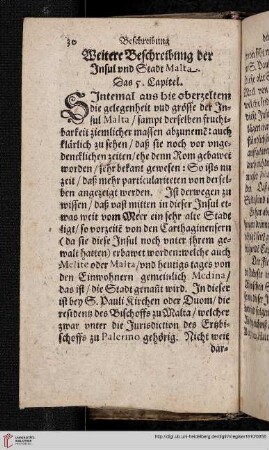 30 Beschreibung
Weitere Beschreibung der
Insul vnd Stadt Malta.
Das 5. Capitel.
SIntemal aus die oberzeltem
die gelegenheit vnd grösse der In-
sul Malta / sampt derselben frucht-
barkeit ziemlicher massen abzunemē: auch
klärlich zu sehen / daß sie noch vor vnge-
dencklichen zeiten / ehe denn Rom gebawet
worden / sehr bekant gewesen: So ists nu
zeit / daß mehr particulariteten von dersel-
ben angezeigt werden. Ist derwegen zu
wissen / daß vast mitten in dieser Insul et-
was weit vom Meer ein sehr alte Stadt
ligt / so vorzeitē von den Carthaginensern
(da sie diese Insul noch vnter jhrem ge-
walt hatten) erbawet worden: welche auch
Melite oder Malta / vnd heutigs tages von
den Einwohnern gemeinlich Medina /
das ist / die Stadt genañt wird. In dieser
ist bey S. Pauli Kirchen oder Duom / die
residentz des Bischoffs zu Malta / welcher
zwar vnter die Jurisdiction des Ertzbi-
schoffs zu Palermo gehörig. Nicht weit
dar-